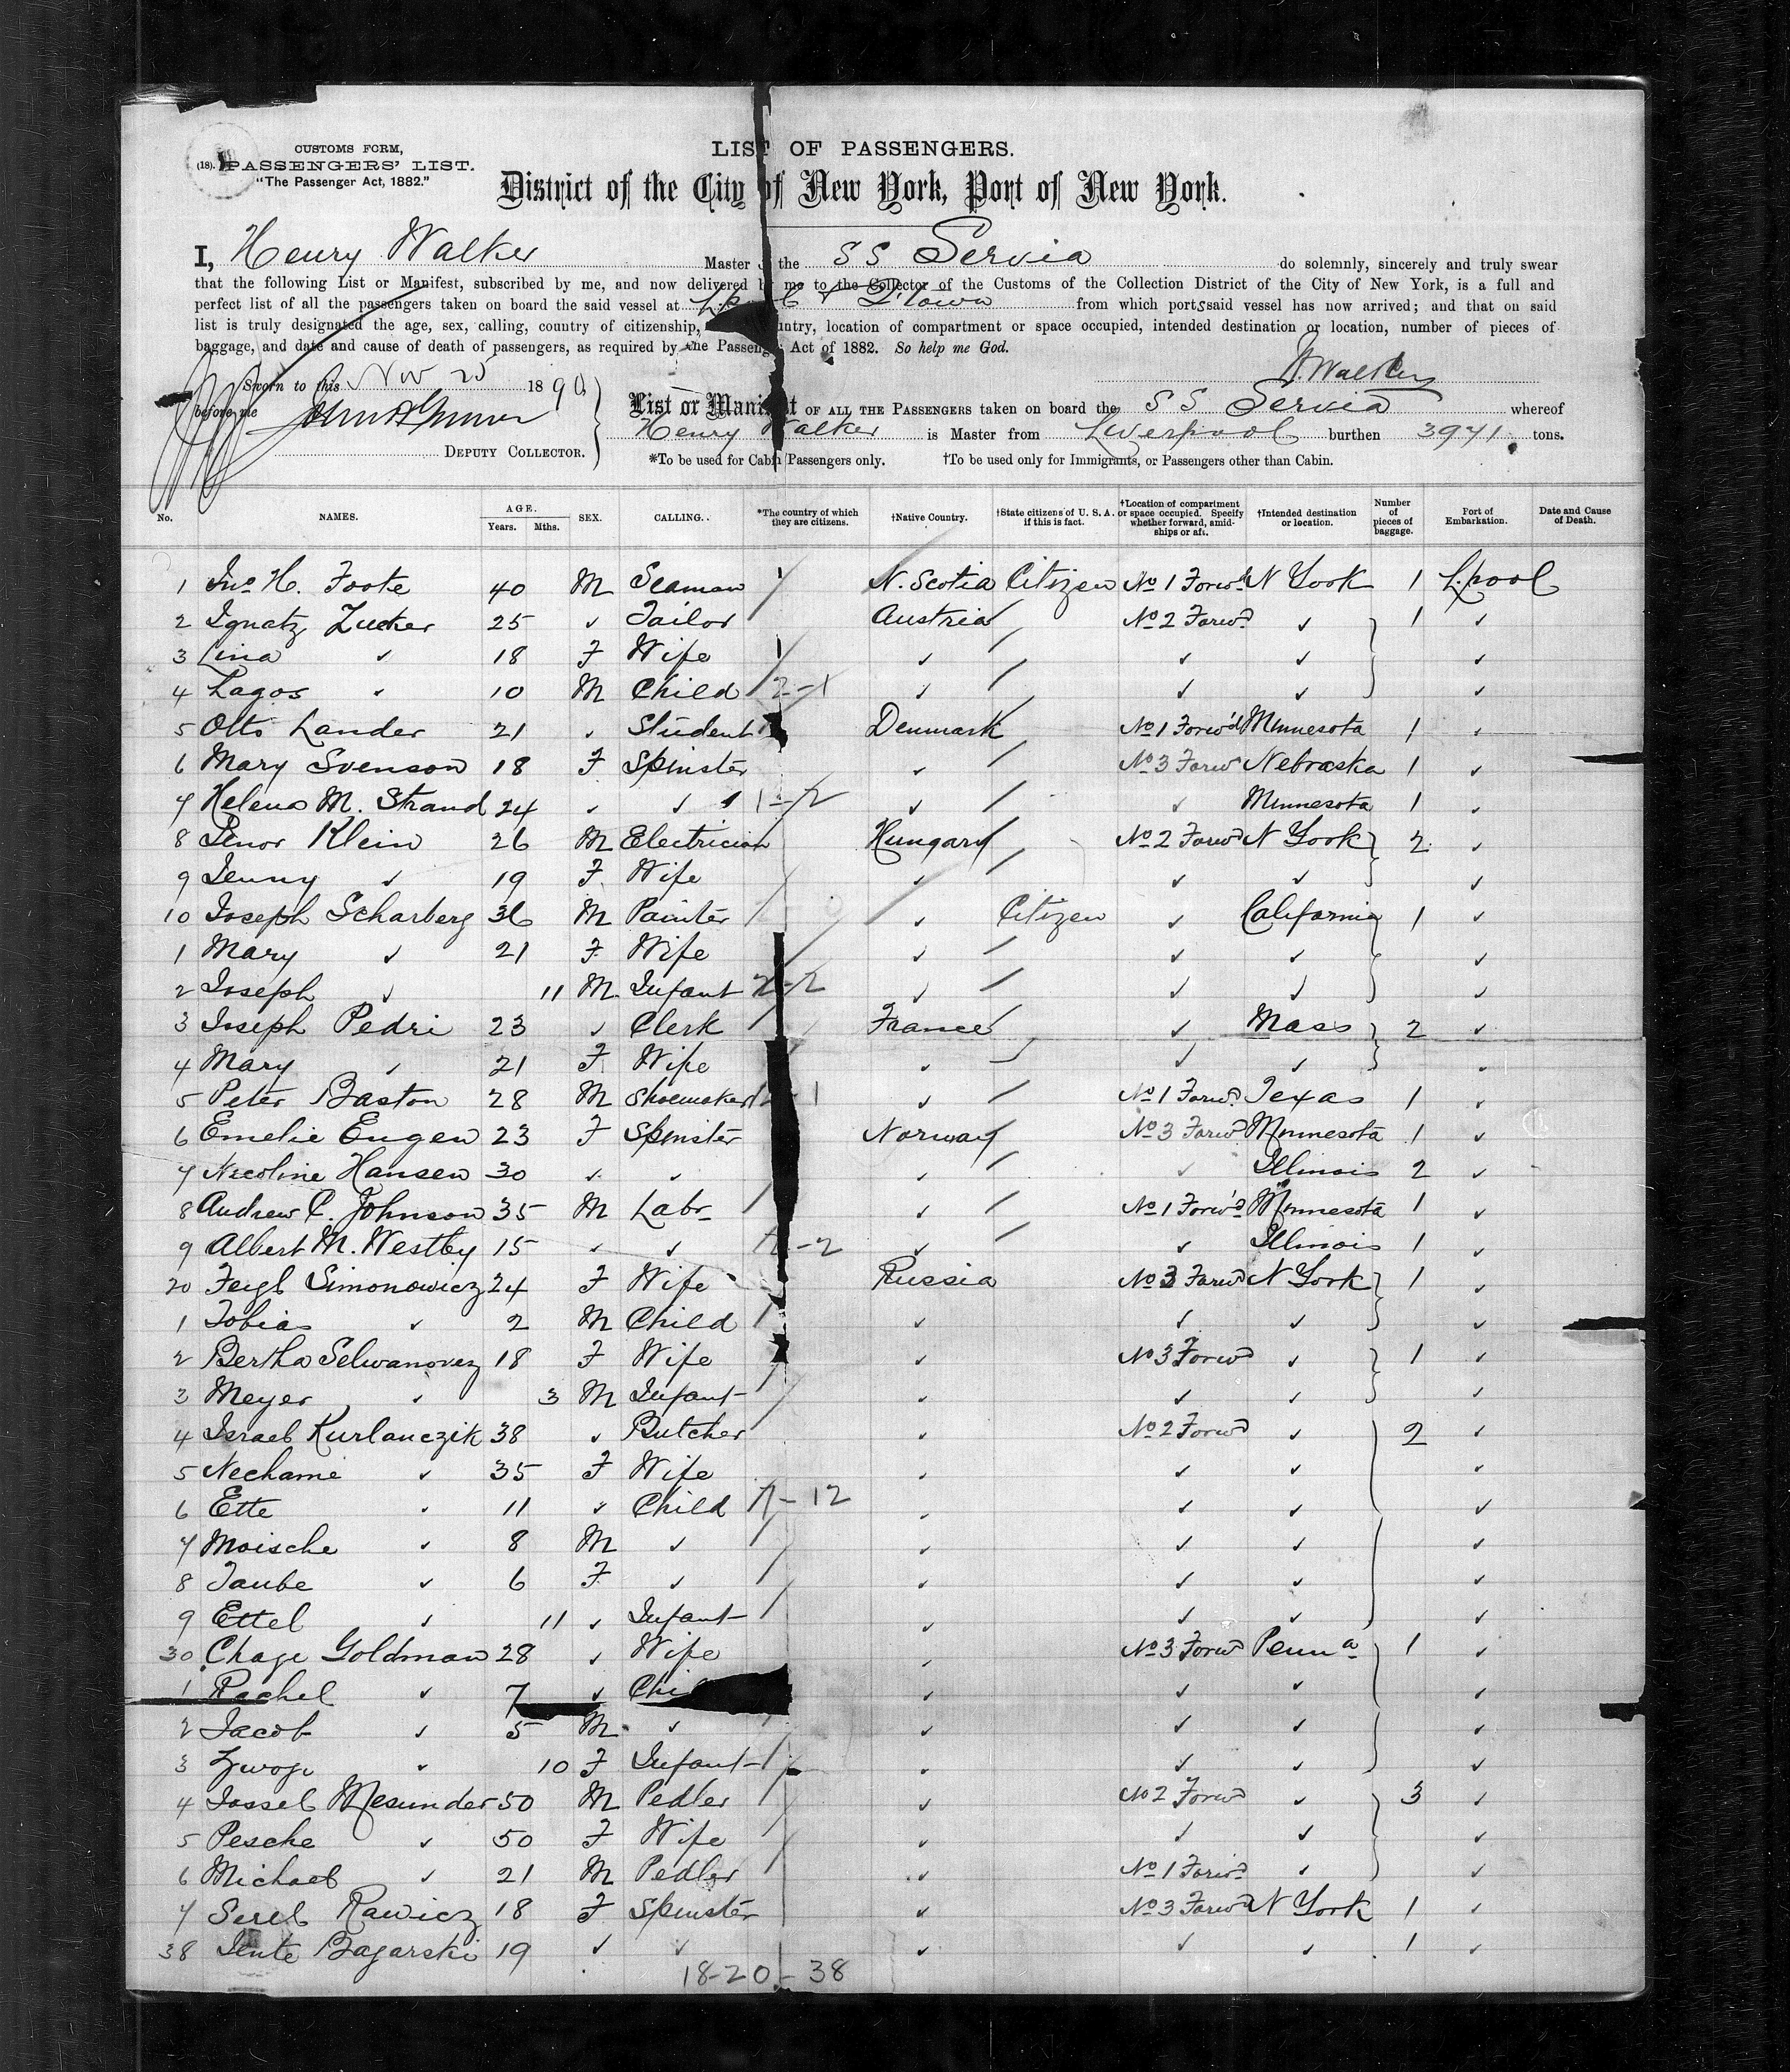 CUSTOMS FORM,
(18). PASSENGERS' LIST.
"The Passenger Act, 1882."
LIST OF PASSENGERS.
District of the City of New York, Port of New York.
I, Henry Walker Master of the SS Servia do solemnly, sincerely and truly swear
that the following List or Manifest, subscribed by me, and now delivered by me to the Collector of the Customs of the Collection District of the City of New York, is a full and
perfect list of all the passengers taken on board the said vessel at L.pool & Q.town from which ports said vessel has now arrived; and that on said
list is truly designated the age, sex, calling, country of citizenship, country, location of compartment or space occupied, intended destination or location, number of pieces of
baggage, and date and cause of death of passengers, as required by the Passenger Act of 1882. So help me God.
H. Walker
Sworn to this Nov 25 1890
before me
DEPUTY COLLECTOR.
List or Manifest OF ALL THE PASSENGERS taken on board the SS Servia whereof
Henry Walker is Master from Liverpool burthen 3971 tons.
*To be used for Cabin Passengers only. †To be used only for Immigrants, or Passengers other than Cabin.
No. NAMES. AGE. Years. Mths. SEX. CALLING. *The country of which they are citizens. †Native Country. †State citizens of U. S. A. if this is fact. †Location of compartment or space occupied. Specify whether forward, amidships or aft. †Intended destination or location. Number of pieces of baggage. Port of Embarkation. Date and Cause of Death.
1 Jno H. Foote 40 M Seaman N. Scotia Citizen No 1 Forwd N York 1 L.pool
2 Ignatz Zucker 25 ✓ Tailor Austria No 2 Forwd ✓ 1 ✓
3 Lina ✓ 18 F Wife ✓ ✓ ✓ ✓
4 Lagos ✓ 10 M Child 2-1 ✓ ✓ ✓ ✓
5 Otto Lander 21 ✓ Student Denmark No 1 Forw'd Minnesota 1 ✓
6 Mary Svenson 18 F Spinster ✓ No 3 Forwd Nebraska 1 ✓
7 Helena M. Strand 24 ✓ ✓ 1-2 ✓ ✓ Minnesota 1 ✓
8 Jenor Klein 26 M Electrician Hungary No 2 Forwd N York 2 ✓
9 Jenny ✓ 19 F Wife ✓ ✓ ✓ ✓
10 Joseph Scharberg 36 M Painter ✓ Citizen ✓ California 1 ✓
1 Mary ✓ 21 F Wife ✓ ✓ ✓ ✓
2 Joseph ✓ 11 M Infant 2-2 ✓ ✓ ✓ ✓
3 Joseph Pedri 23 ✓ Clerk France ✓ Mass 2 ✓
4 Mary ✓ 21 F Wife ✓ ✓ ✓ ✓
5 Peter Baston 28 M Shoemaker 1 ✓ No 1 Forwd Texas 1 ✓
6 Emelie Eugen 23 F Spinster Norway No 3 Forwd Minnesota 1 ✓
7 Nicoline Hansen 30 ✓ ✓ ✓ ✓ Illinois 2 ✓
8 Andrew C. Johnson 35 M Labr ✓ No 1 Forw'd Minnesota 1 ✓
9 Albert M. Westby 15 ✓ ✓ 2-2 ✓ ✓ Illinois 1 ✓
20 Feigl Simonowicz 24 F Wife Russia No 3 Forwd N York 1 ✓
1 Tobias ✓ 2 M Child ✓ ✓ ✓ ✓
2 Bertha Selwanovez 18 F Wife ✓ No 3 Forwd ✓ 1 ✓
3 Meyer ✓ 3 M Infant ✓ ✓ ✓ ✓
4 Israel Kurlanczik 38 ✓ Butcher ✓ No 2 Forwd ✓ 2 ✓
5 Nechame ✓ 35 F Wife ✓ ✓ ✓ ✓
6 Ette ✓ 11 ✓ Child 7-12 ✓ ✓ ✓ ✓
7 Moische ✓ 8 M ✓ ✓ ✓ ✓ ✓
8 Taube ✓ 6 F ✓ ✓ ✓ ✓ ✓
9 Ettel ✓ 11 ✓ Infant ✓ ✓ ✓ ✓
30 Chage Goldman 28 ✓ Wife ✓ No 3 Forwd Penna 1 ✓
1 Rachel ✓ 7 ✓ Chi ✓ ✓ ✓ ✓
2 Jacob ✓ 5 M ✓ ✓ ✓ ✓ ✓
3 Zwoge ✓ 10 F Infant ✓ ✓ ✓ ✓
4 Jossel Mesunder 50 M Pedler ✓ No 2 Forwd ✓ 3 ✓
5 Pesche ✓ 50 F Wife ✓ ✓ ✓ ✓
6 Michael ✓ 21 M Pedler ✓ No 1 Forwd ✓ ✓
7 Serel Rawicz 18 F Spinster ✓ No 3 Forwd N York 1 ✓
38 Jente Bagarski 19 ✓ ✓ ✓ ✓ ✓ 1 ✓
18-20-38